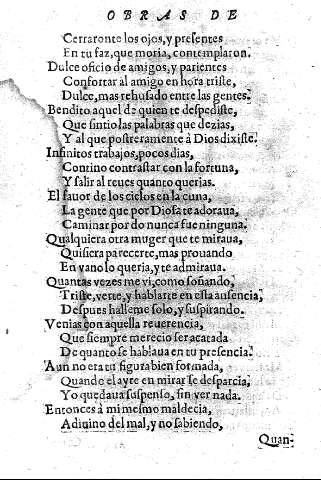 OBRAS DE
Cerraronte los ojos, y presentes
En tu faz, que moria, contemplaron.
Dulce oficio de amigos, y parientes
Confortar al amigo en hora triste,
Dulce, mas rehusado entre las gentes.
Bendito aquel de quien te despediste,
Que sintio las palabras que dezias,
Y al que postreramente à Dios dixiste.
Infinitos trabajos, pocos dias,
Contino contrastar con la fortuna,
Y salir al reues quanto querias.
El fauor de los cielos en la cuna,
La gente que por Diosa te adoraua,
Caminar por do nunca fue ninguna.
Qualquiera otra muger que te miraua,
Quisiera parecerte, mas prouando
En vano lo queria, y te admiraua.
Quantas vezes me vi, como soñando,
Triste, verte, y hablarte en esta ausencia,
Despues halleme solo, y suspirando.
Venias con aquella reuerencia,
Que siempre merecio ser acatada
De quanto se hablaua en tu presencia.
Aun no era tu figura bien formada,
Quando el ayre en mirar se desparcia,
Yo quedaua suspenso, sin ver nada.
Entonces à mi mesmo maldecia,
Adiuino del mal, y no sabiendo,
Quan-